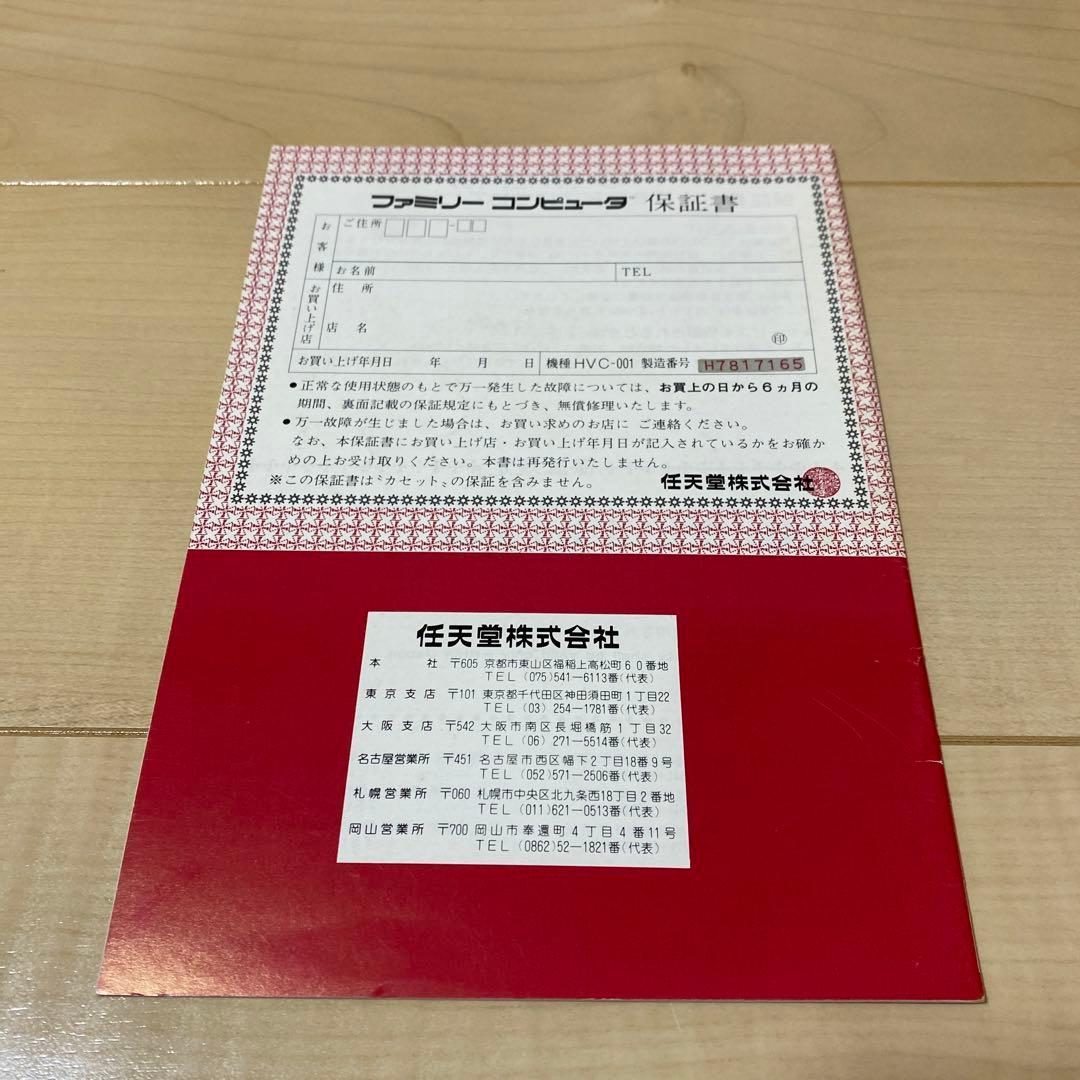 ファミリー コンピュータ™ 保証書
お客様
ご住所
お名前 TEL
お買い上げ店
住所
店名 ㊞
お買い上げ年月日 年 月 日 機種 HVC-001 製造番号 H7817165
●正常な使用状態のもとで万一発生した故障については、お買上の日から6ヵ月の
期間、裏面記載の保証規定にもとづき、無償修理いたします。
●万一故障が生じました場合は、お買い求めのお店に ご連絡ください。
なお、本保証書にお買い上げ店・お買い上げ年月日が記入されているかをお確か
めの上お受け取りください。本書は再発行いたしません。
※この保証書は〝カセット〟の保証を含みません。
任天堂株式会社
任天堂株式会社
本社 〒605 京都市東山区福稲上高松町60番地
TEL (075)541-6113番(代表)
東京支店 〒101 東京都千代田区神田須田町1丁目22
TEL (03) 254-1781番(代表)
大阪支店 〒542 大阪市南区長堀橋筋1丁目32
TEL (06) 271-5514番(代表)
名古屋営業所 〒451 名古屋市西区幅下2丁目18番9号
TEL (052)571-2506番(代表)
札幌営業所 〒060 札幌市中央区北九条西18丁目2番地
TEL (011)621-0513番(代表)
岡山営業所 〒700 岡山市奉還町4丁目4番11号
TEL (0862)52-1821番(代表)